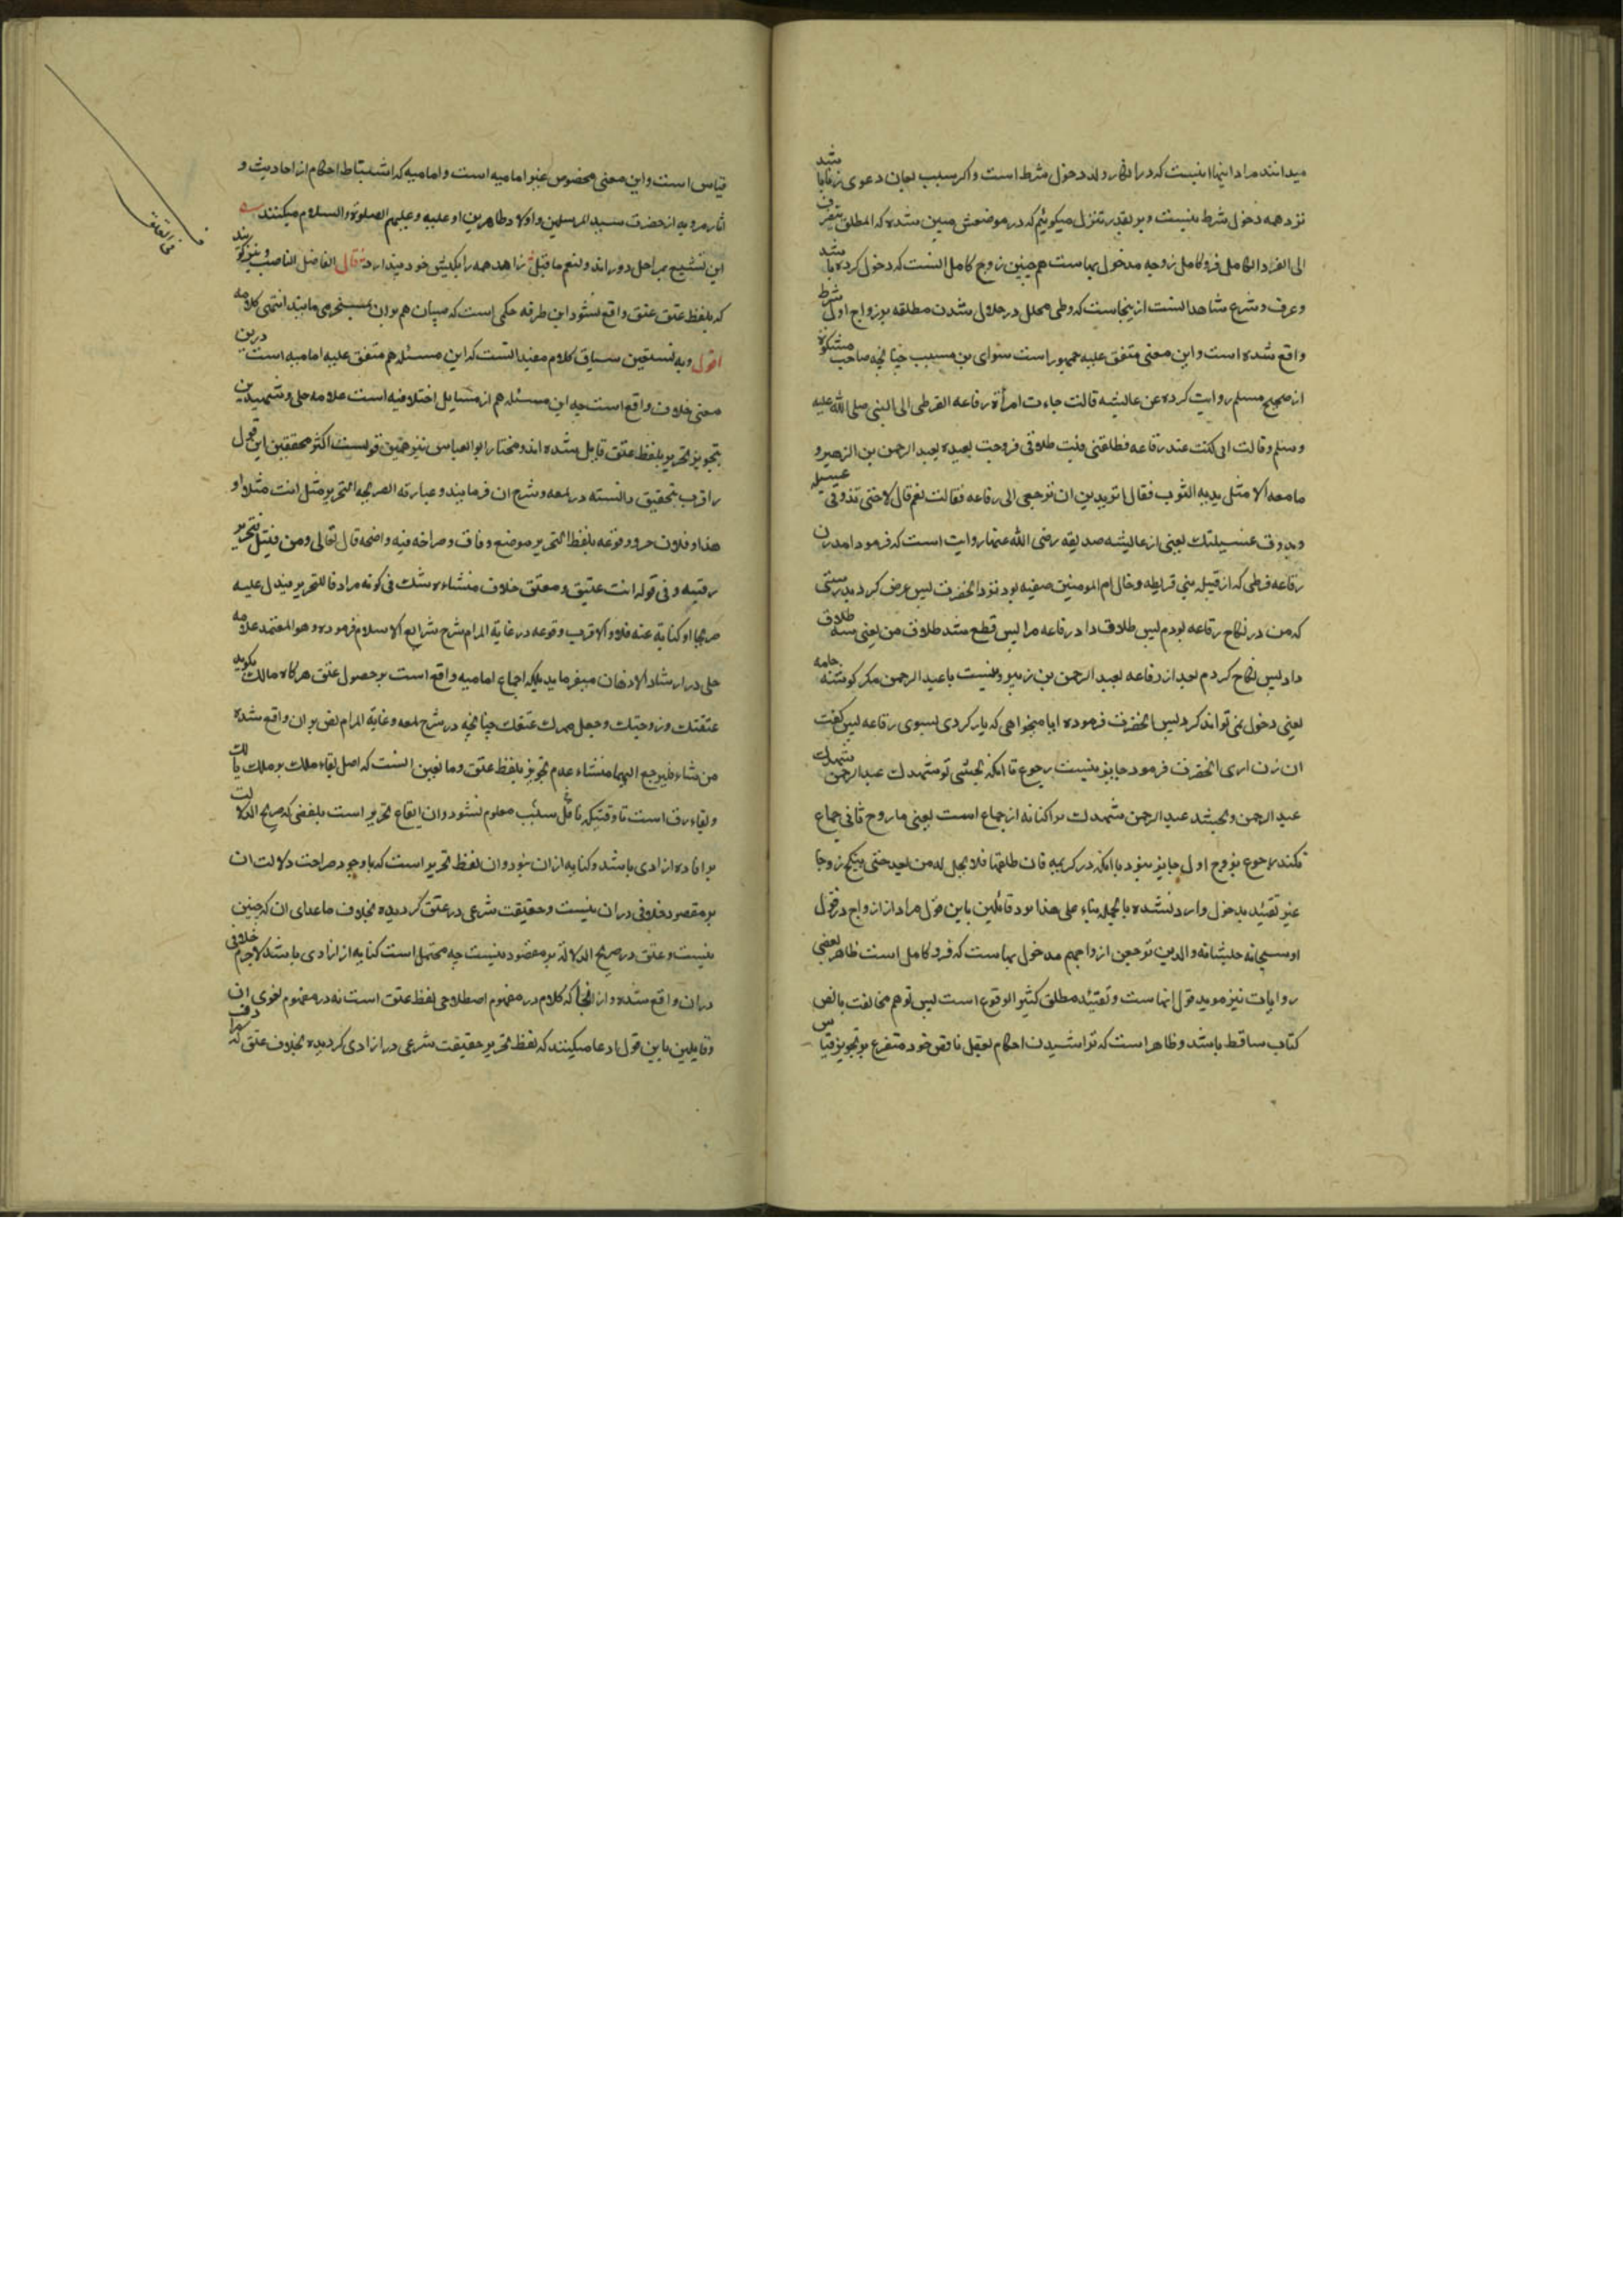 میدانند مراد اینها اینست که در انکار ولد دخول شرط است و اکر بسبب لعان دعوی زنا باشد
نزد همه دخول شرط نیست و بر تقدیر تنزل میکوئیم که در موضعش مبین شده که المطلق ینصرف
الی الفرد الکامل فرد کامل زوجه مدخول بهاست همچنین زوج کامل انست که دخول کرده باشد
و عرف و شرع شاهد انست از ینجاست که وطی محلل در حلال شدن مطلقه بزواج اول شرط
واقع شده است و این معنی متفق علیه جمهور است سوای بن مسیب چنانچه صاحب مشکوة
از صحیح مسلم روایت کرده عن عائشه قالت جاءت امرأة رفاعه القرظی الی النبی صلی الله علیه
وسلم وقالت انی کنت عند رفاعه فطلقنی فبت طلاقی فزوجت بعده بعبد الرحمن بن الزبیر و
ما معه الا مثل هدبه الثوب فقال اتریدین ان ترجعی الی رفاعه فقالت نعم قال لا حتی تذوقی عسیله
ویذوق عسیلتک یعنی از عایشه صدیقه رضی الله عنها روایت است که فرمود امد زن
رفاعه قرظی که از قبیله بنی قریظه و خال ام المومنین صفیه بود نزد انحضرت پس عرض کرد بدرستی
که من در نکاح رفاعه بودم پس طلاق داد رفاعه مرا پس قطع شد طلاق من یعنی سه طلاق
داد پس نکاح کردم بعد از رفاعه بعبد الرحمن بن زبیر و نیست با عبد الرحمن مکر کوشه جامه
یعنی دخول نمی تواند کرد پس انحضرت فرموده ایا میخواهی که باز کردی بسوی رفاعه پس کفت
ان زن اری انحضرت فرمود جایز نیست رجوع تا انکه بچشی تو شهدک عبد الرحمن شهدک
عبد الرحمن و بچشد عبد الرحمن شهدک مرا کنایه از جماع است یعنی ما زوج ثانی جماع
نکند رجوع بزوج اول جایز نبود با انکه در کریمه فان طلقها فلا تحل له من بعد حتی تنکح زوجا
غیره تقیید بدخول وارد نشده بالجمله بناء علی هذا نزد قائلین باین قول مراد از ازواج در قول
او سبحانه جلشانه والذین یرمون ازواجهم مدخول بهاست که فرد کامل است ظاهر بعضی
روایات نیز موید قول انهاست و تقیید مطلق کثیر الوقوع است پس توهم مخالفت بالنص
کتاب ساقط باشد و ظاهر است که تراشیدن احکام بعقل ناقص خود متفرع بر تجویز قیاس
قیاس است و این معنی مخصوص غیر امامیه است و امامیه که استنباط احکام از احادیث و
اثار مرویه از حضرت سید المرسلین و اولاد طاهرین او علیه و علیهم الصلوة والسلام میکنند
این تشنیع بمراحل دور اند ولنعم ما قیل زاهد همه را بکیش خود میپندارد قال الفاضل الناصب و نیز کویند
که بلفظ عتق عتق واقع نشود این طرفه حکمی است که صبیان هم بران بسخر می مانند انتهی کلامه
اقول وبه نستعین سیاق کلام مفید انست که این مسئله هم متفق علیه امامیه است درین
معنی خلاف واقع است چه این مسئله هم از مسایل اختلافیه است علامه حلی و شهیدین
بتجویز تحریر بلفظ عتق قایل شده اند و مختار ابو العباس نیز همین قولست اکثر محققین این قول
را قرب بتحقیق دانسته در لمعه و شرح ان فرمایند وعبارته الصریحه التحریر مثل انت مثلا او
هذا و فلان حر و وقوعه بلفظ التحریر موضع وفاق وصراحه فیه واضحه قال تعالی ومن قتل فتحریر
رقبه و فی قوله انت عتیق و معتق خلاف منشاءه شک فی کونه مرادفا للتحریر فیدل علیه
صریحا او کنایة عنه فلا و الاقرب وقوعه در غایة المرام شرح شرایع الاسلام فرموده وهو المعتمد علامه
حلی در ارشاد الاذهان میفرماید بلکه اجماع امامیه واقع است بر حصول عتق هرکاه مالک بکوید
عتقتک وزوجتک وجعل مهرک عتقک چنانچه در شرح لمعه و غایة المرام نص بران واقع شده
من شاء فلیرجع الیهما منشاء عدم تجویز بلفظ عتق و مانعین انست که اصل بقاء ملک بر ملک مالک
و بقاء رق است تا وقتیکه ناقل سبب معلوم نشود وان ایقاع تحریر است بلفظی که صریح الدلالت
بر افاده ازادی باشد و کنایه ازان نبود وان لفظ تحریر است که با وجود صراحت دلالت ان
بر مقصود خلافی دران نیست و حقیقت شرعی در عتق کردیده بخلاف ماعدای ان که چنین
نیست و عتق در صریح الدلالة بر مقصود نیست چه محتمل است کنایه از ازادی باشد لاجرم خلافی
دران واقع شده و از انجا که کلام در مفهوم اصطلاحی لفظ عتق است نه در مفهوم لغوی ان
و قایلین باین قول ادعا میکنند که لفظ تحریر حقیقت شرعی در ازادی کردیده بخلاف عتق که